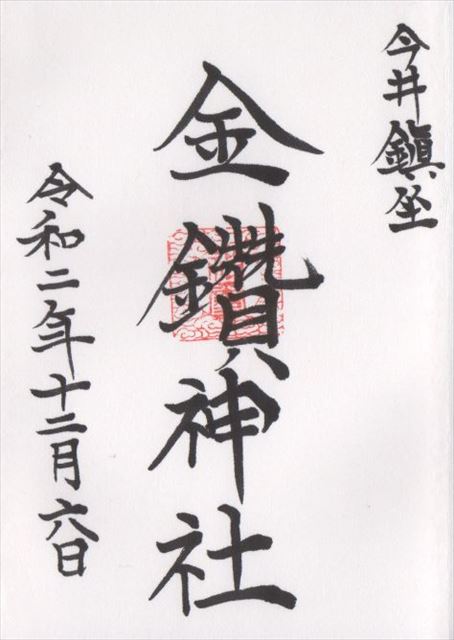 今井鎮坐
金鑚神社
令和二年十二月六日